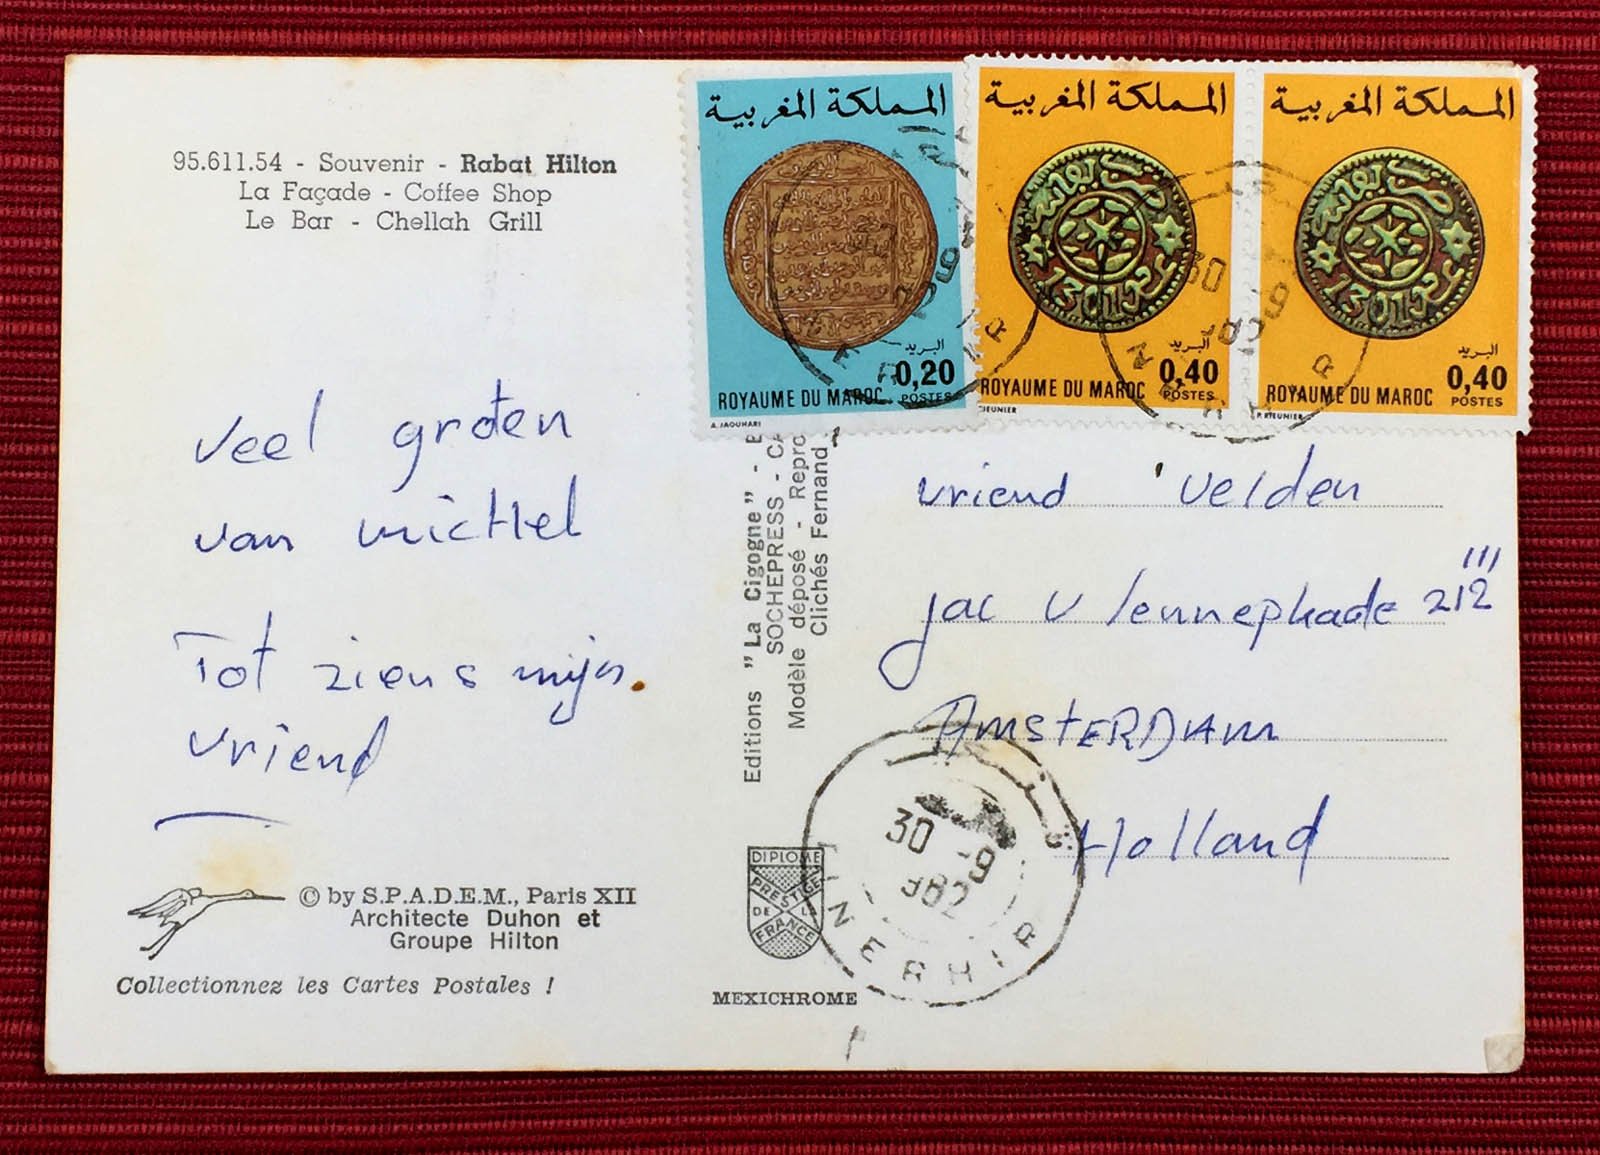 95.611.54 - Souvenir - Rabat Hilton
La Façade - Coffee Shop
Le Bar - Chellah Grill
veel groten
van micHel
Tot ziens mijn.
vriend
© by S.P.A.D.E.M., Paris XII
Architecte Duhon et
Groupe Hilton
Collectionnez les Cartes Postales !
Editions "La Cigogne" -
SOCHEPRESS -
Modèle déposé - Repro
Clichés Fernand
DIPLOME
PRESTIGE
DE LA
FRANCE
MEXICHROME
المملكة المغربية
البريد
0,20
ROYAUME DU MAROC POSTES
A. JAOUHARI
المملكة المغربية
1301
البريد
0,40
ROYAUME DU MAROC POSTES
المملكة المغربية
1301
البريد
0,40
ROYAUME DU MAROC POSTES
vriend Velden
Jac v lennepkade 212 III
AmsTERDAm
Holland
30 -9
982
TINERHIR